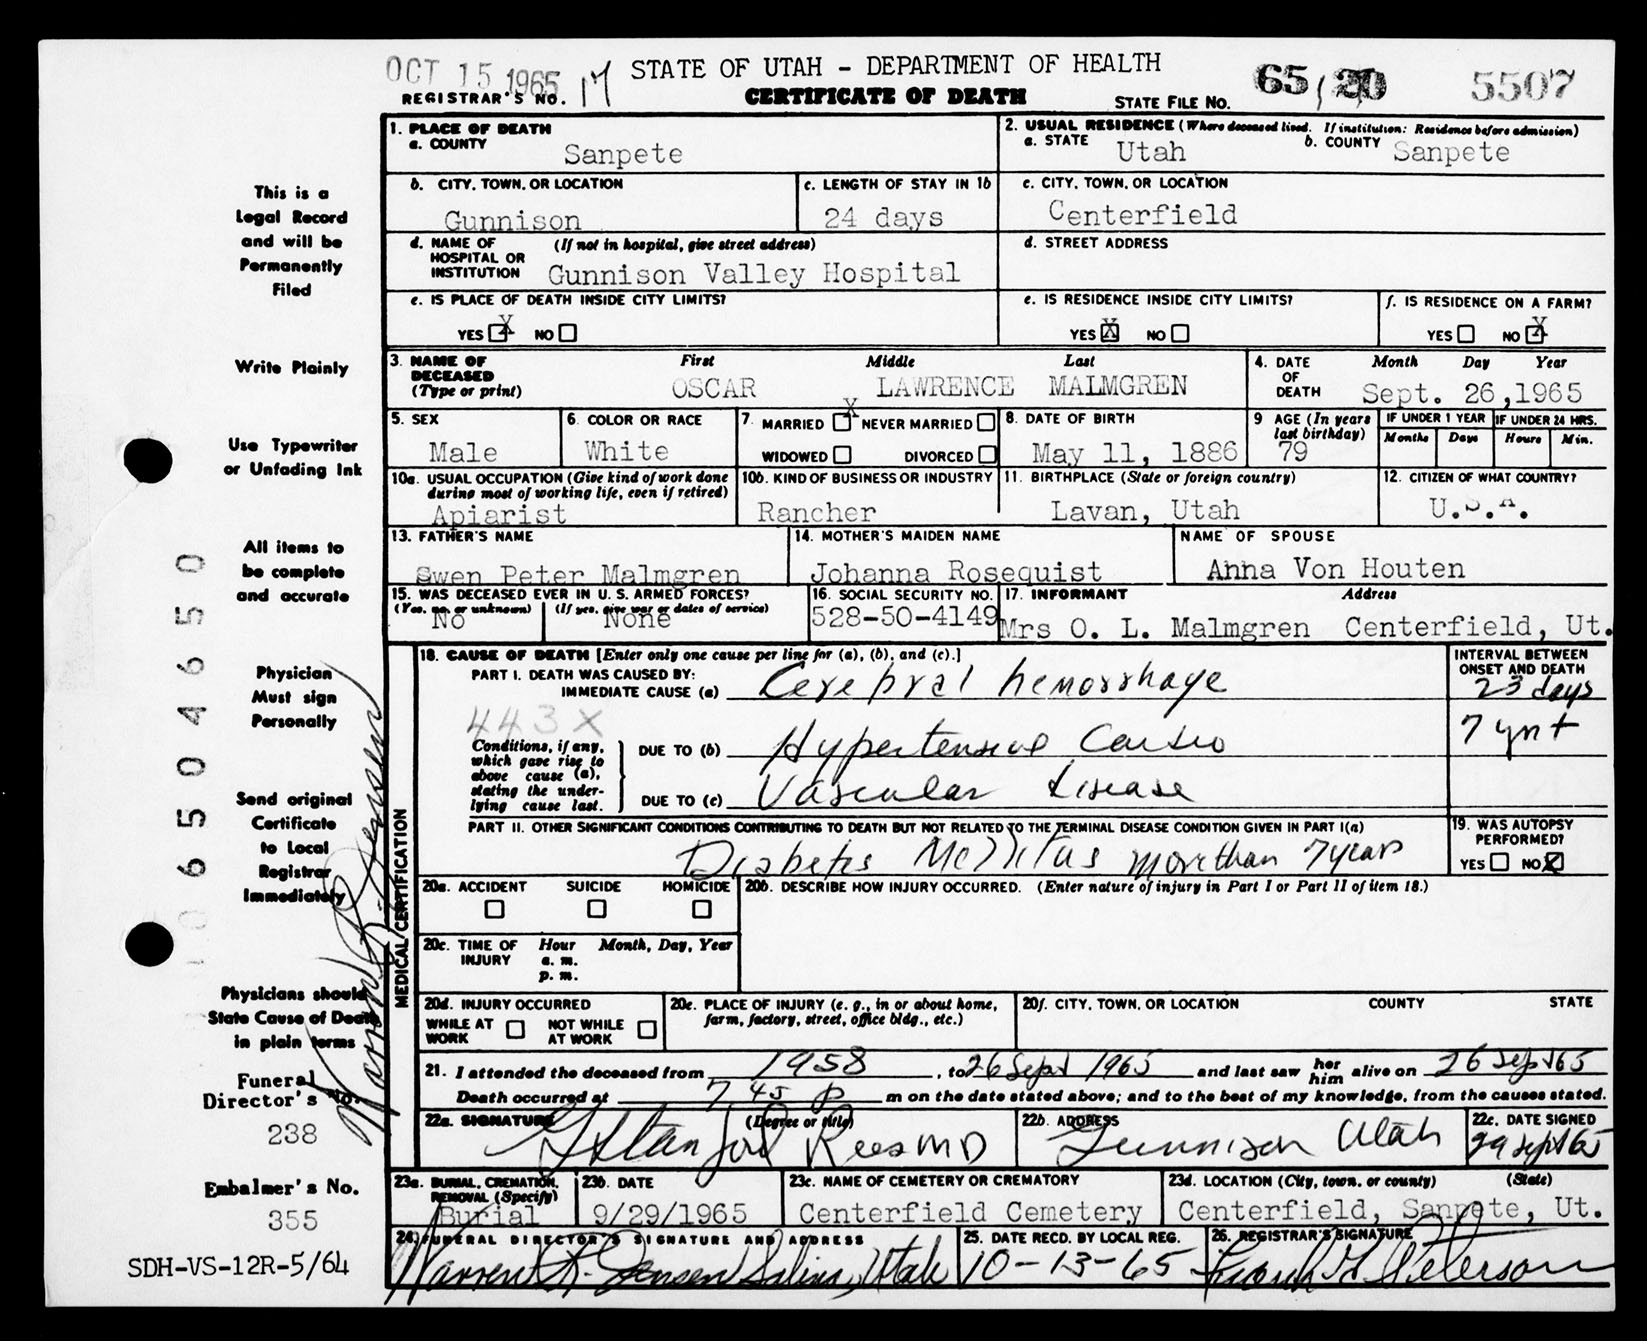 OCT 15 1965 17 STATE OF UTAH - DEPARTMENT OF HEALTH 65 20 5507
REGISTRAR'S NO. CERTIFICATE OF DEATH STATE FILE NO.
1. PLACE OF DEATH 2. USUAL RESIDENCE (Where deceased lived. If institution: Residence before admission)
a. COUNTY Sanpete a. STATE Utah b. COUNTY Sanpete
b. CITY, TOWN, OR LOCATION c. LENGTH OF STAY IN 1b c. CITY, TOWN, OR LOCATION
Gunnison 24 days Centerfield
d. NAME OF HOSPITAL OR INSTITUTION (If not in hospital, give street address) d. STREET ADDRESS
Gunnison Valley Hospital
e. IS PLACE OF DEATH INSIDE CITY LIMITS? e. IS RESIDENCE INSIDE CITY LIMITS? f. IS RESIDENCE ON A FARM?
YES X NO YES X NO YES NO X
3. NAME OF DECEASED (Type or print) First Middle Last 4. DATE OF DEATH Month Day Year
OSCAR LAWRENCE MALMGREN Sept. 26,1965
5. SEX 6. COLOR OR RACE 7. MARRIED X NEVER MARRIED 8. DATE OF BIRTH 9 AGE (In years last birthday) IF UNDER 1 YEAR IF UNDER 24 HRS.
Months Days Hours Min.
Male White WIDOWED DIVORCED May 11, 1886 79
10a. USUAL OCCUPATION (Give kind of work done during most of working life, even if retired) 10b. KIND OF BUSINESS OR INDUSTRY 11. BIRTHPLACE (State or foreign country) 12. CITIZEN OF WHAT COUNTRY?
Apiarist Rancher Lavan, Utah U.S.A.
13. FATHER'S NAME 14. MOTHER'S MAIDEN NAME NAME OF SPOUSE
Swen Peter Malmgren Johanna Rosequist Anna Von Houten
15. WAS DECEASED EVER IN U. S. ARMED FORCES? 16. SOCIAL SECURITY NO. 17. INFORMANT Address
(Yes, no, or unknown) (If yes, give war or dates of service)
No None 528-50-4149 Mrs O. L. Malmgren Centerfield, Ut.
18. CAUSE OF DEATH [Enter only one cause per line for (a), (b), and (c).] INTERVAL BETWEEN ONSET AND DEATH
PART I. DEATH WAS CAUSED BY:
IMMEDIATE CAUSE (a) Cerebral hemorrhage 23 days
443X
Conditions, if any, which gave rise to above cause (a), stating the underlying cause last.
DUE TO (b) Hypertensive Cardio 7 yrs +
DUE TO (c) Vascular disease
PART II. OTHER SIGNIFICANT CONDITIONS CONTRIBUTING TO DEATH BUT NOT RELATED TO THE TERMINAL DISEASE CONDITION GIVEN IN PART I(a) 19. WAS AUTOPSY PERFORMED?
Diabetis Mellitus more than 7 years YES NO X
20a. ACCIDENT SUICIDE HOMICIDE 20b. DESCRIBE HOW INJURY OCCURRED. (Enter nature of injury in Part I or Part II of item 18.)
20c. TIME OF INJURY Hour a. m. p. m. Month, Day, Year
20d. INJURY OCCURRED 20e. PLACE OF INJURY (e. g., in or about home, farm, factory, street, office bldg., etc.) 20f. CITY, TOWN, OR LOCATION COUNTY STATE
WHILE AT WORK NOT WHILE AT WORK
21. I attended the deceased from 1958, to 26 Sept 1965 and last saw her him alive on 26 Sept 65
Death occurred at 7 45 p m on the date stated above; and to the best of my knowledge, from the causes stated.
22a. SIGNATURE (Degree or title) 22b. ADDRESS 22c. DATE SIGNED
G Stanford Rees MD Gunnison Utah 29 Sept 65
23a. BURIAL, CREMATION, REMOVAL (Specify) 23b. DATE 23c. NAME OF CEMETERY OR CREMATORY 23d. LOCATION (City, town, or county) (State)
Burial 9/29/1965 Centerfield Cemetery Centerfield, Sanpete, Ut.
24. FUNERAL DIRECTOR'S SIGNATURE AND ADDRESS 25. DATE RECD. BY LOCAL REG. 26. REGISTRAR'S SIGNATURE
Warren R. Jensen Salina, Utah 10-13-65 Peterson
MEDICAL CERTIFICATION
This is a
Legal Record
and will be
Permanently
Filed
Write Plainly
Use Typewriter
or Unfading Ink
All items to
be complete
and accurate
Physician
Must sign
Personally
Send original
Certificate
to Local
Registrar
Immediately
Physicians should
State Cause of Death
in plain terms
Funeral
Director's No.
238
Embalmer's No.
355
SDH-VS-12R-5/64
Warren R. Jensen
06504650